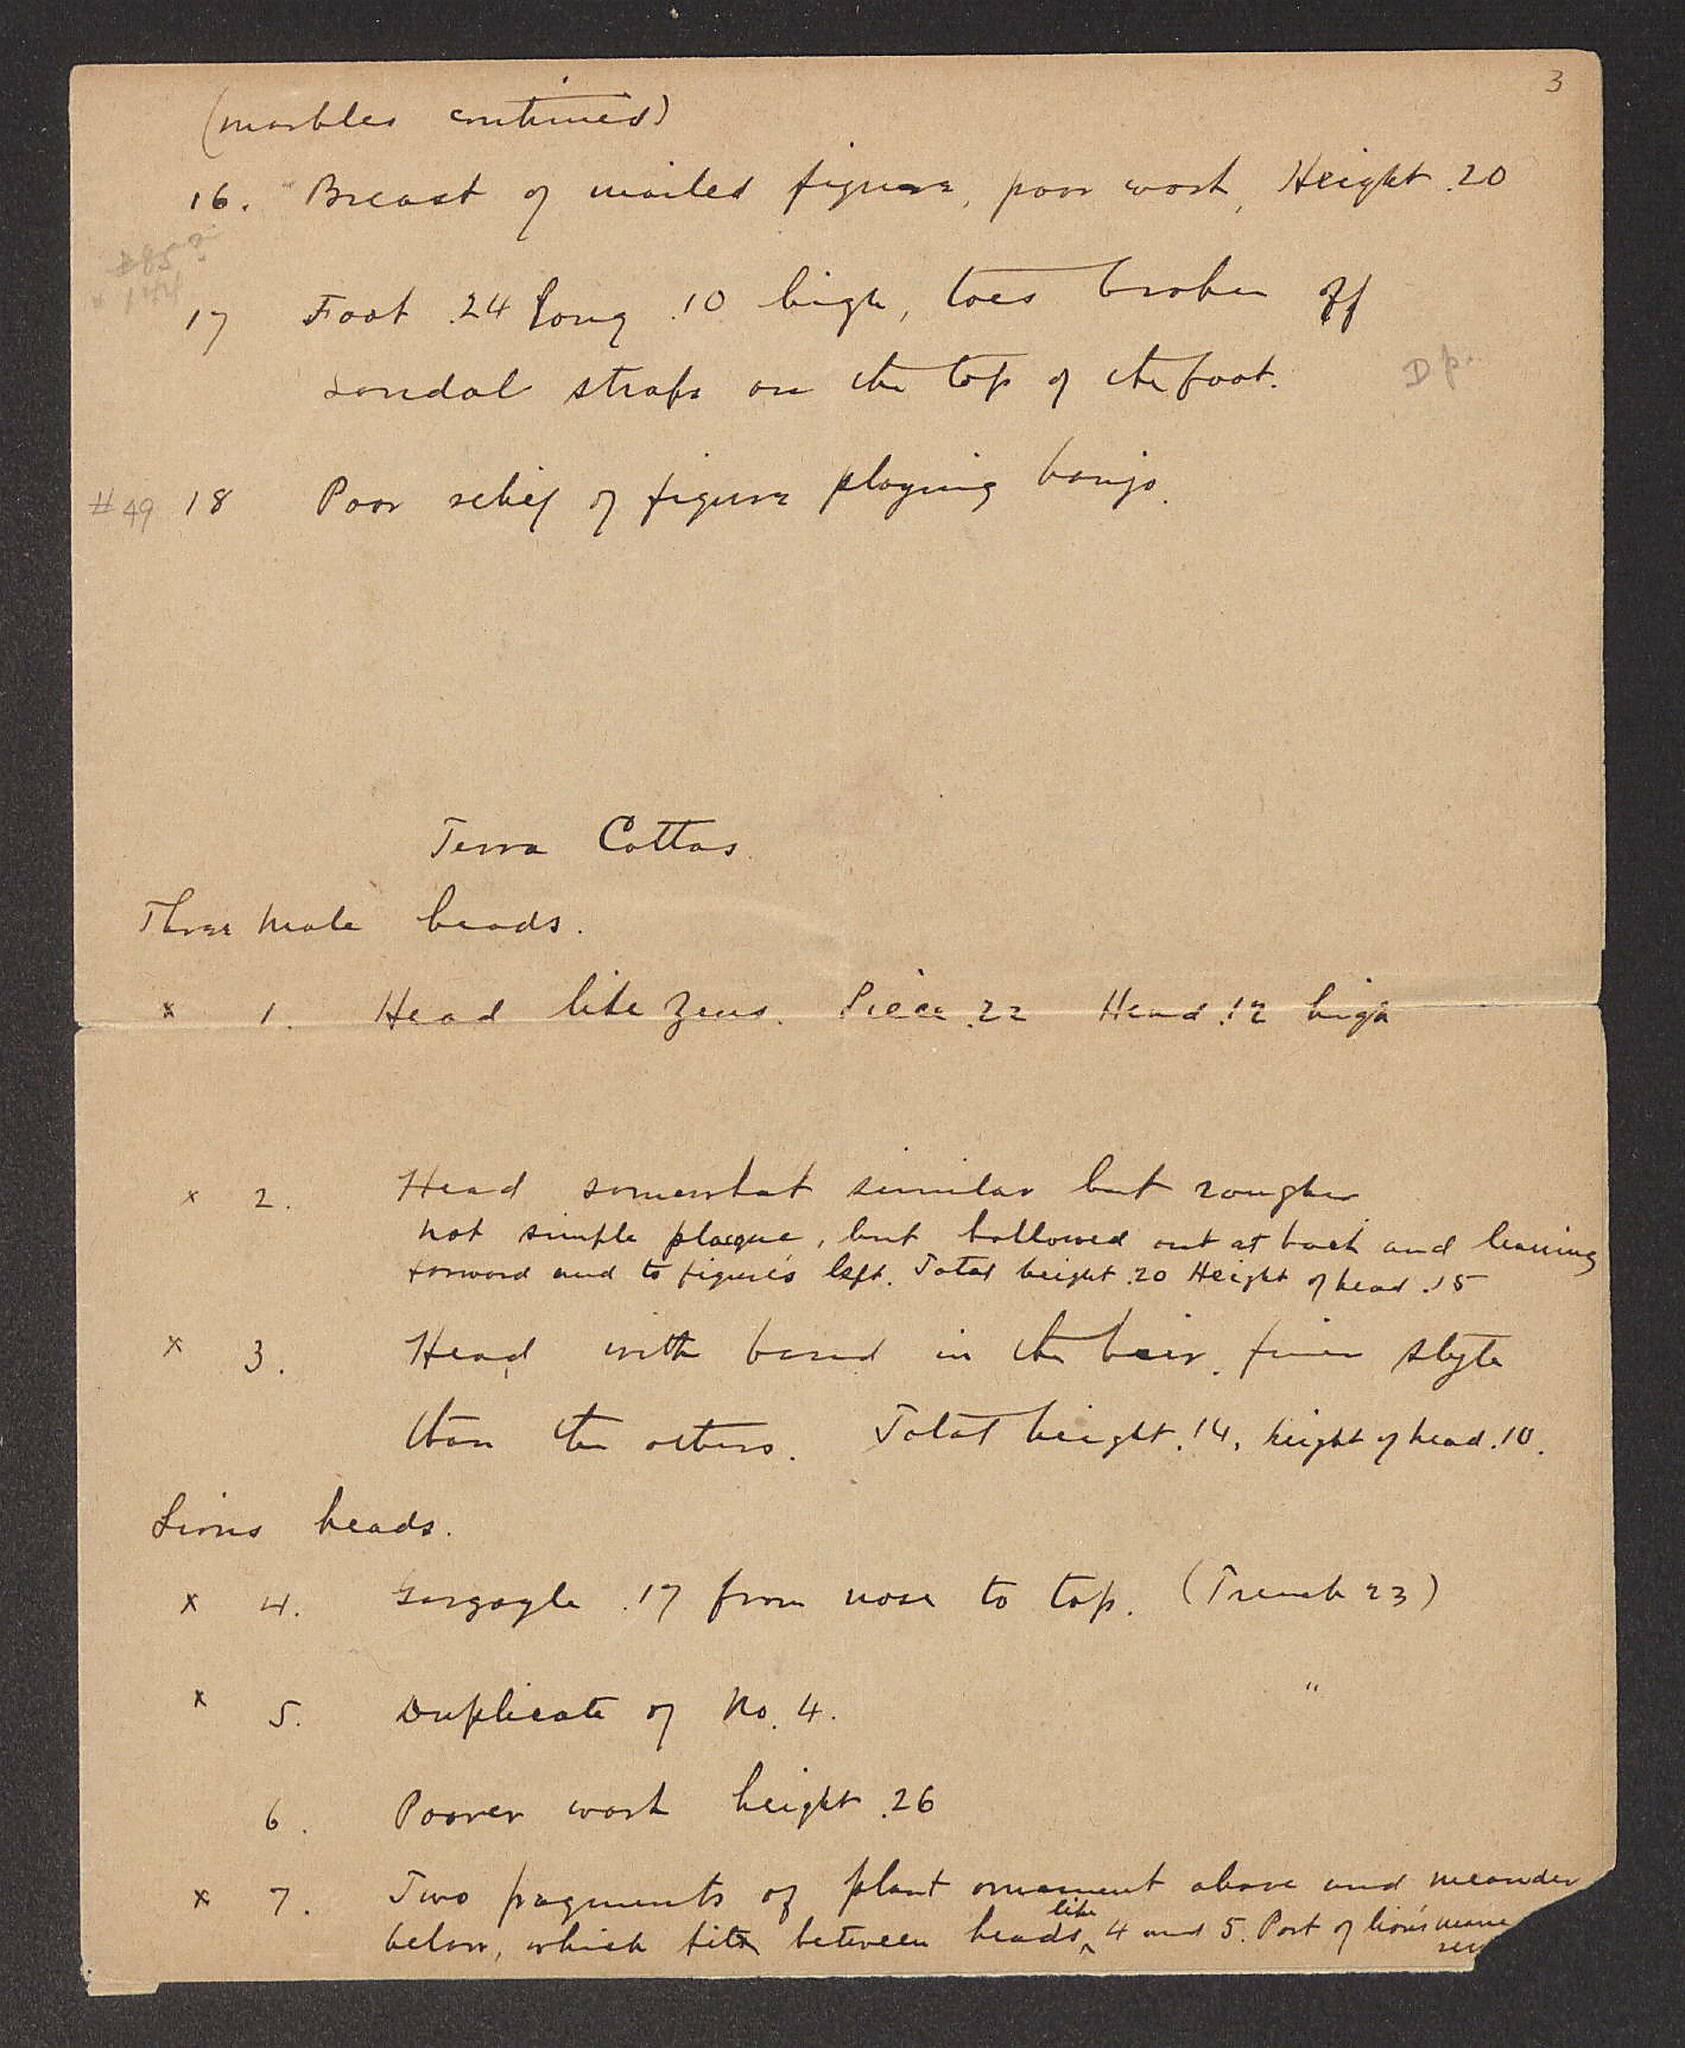 3
(marbles continued)
16. Breast of mailed figure, poor work, Height .20
17 Foot .24 long .10 high, toes broken off
sandal straps on the top of the foot.
D p.
#49 18 Poor relief of figure playing banjo.
Terra Cottas
Three male heads.
x 1. Head like Zeus. Piece .22 Head .12 high
x 2. Head somewhat similar but rougher
not simple plaque, but hollowed out at back and leaning
forward and to figure's left. Total height .20 Height of head .15
x 3. Head with band in the hair. finer style
than the others. Total height .14, height of head .10.
Lions heads.
x 4. Gargoyle .17 from nose to top. (Trench 23)
x 5. Duplicate of No. 4. "
6. Poorer work height .26
x 7. Two fragments of plant ornament above and meander
below, which fit between heads like 4 and 5. Part of lion's mane